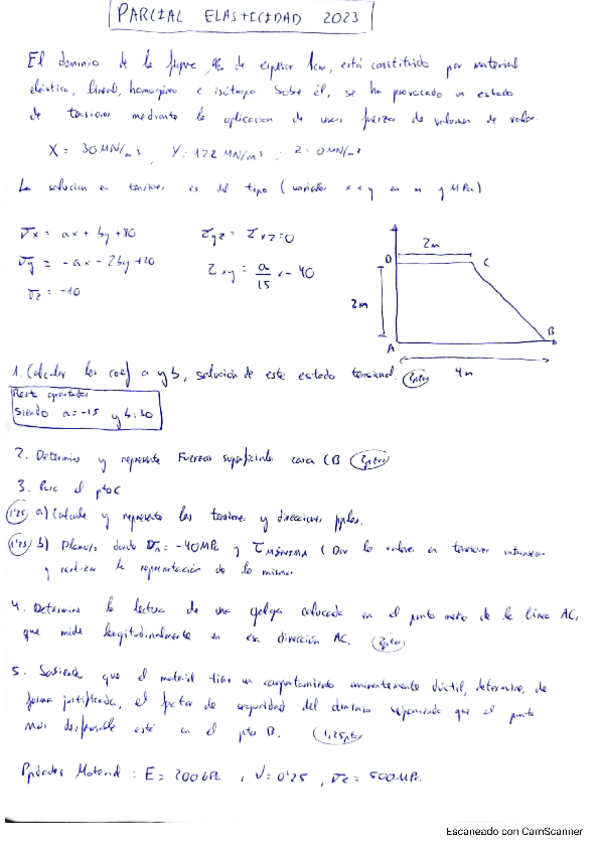 PARCIAL ELASTICIDAD 2023
El dominio de la figura, de espesor 1cm, está constituido por material
elástico, lineal, homogéneo e isótropo. Sobre él, se ha provocado un estado
de tensiones mediante la aplicación de unas fuerzas de volumen de valor.
X = 30 MN/m³, Y: 172 MN/m³; Z = 0 MN/m³
La solucion en tensiones es del tipo (variables x e y en m y MPa)
σx = ax + by + 80
τyz = τxz = 0
σy = -ax - 2by + 20
τxy = a/15 x - 40
σz = -10
2m
D
C
2m
A
B
4m
1. Calcular los coef a y b, solución de este estado tensional. (2ptos)
Resto apartados
siendo a = -15 y b: 30
2. Determine y represente Fuerzas superficiales cara CB (2ptos)
3. Para el pto C
(1'25) a) Calcule y represente las tensiones y direcciones pples.
(1'25) b) Planos donde σn = -40MPa y τ MÁXIMA (Dar los valores en tensiones intrínsecas
y realizar la representación de los mismos
4. Determine la lectura de una galga colocada en el punto medio de la línea AC,
que mide longitudinalmente en esa dirección AC. (2ptos)
5. Sabiendo que el material tiene un comportamiento eminentemente dúctil, determine, de
forma justificada, el factor de seguridad del dominio suponiendo que el punto
más desfavorable esté en el pto B. (1,25pto)
Ppdades Material: E = 200 GPa, ν = 0'25, σe = 500MPa.
Escaneado con CamScanner